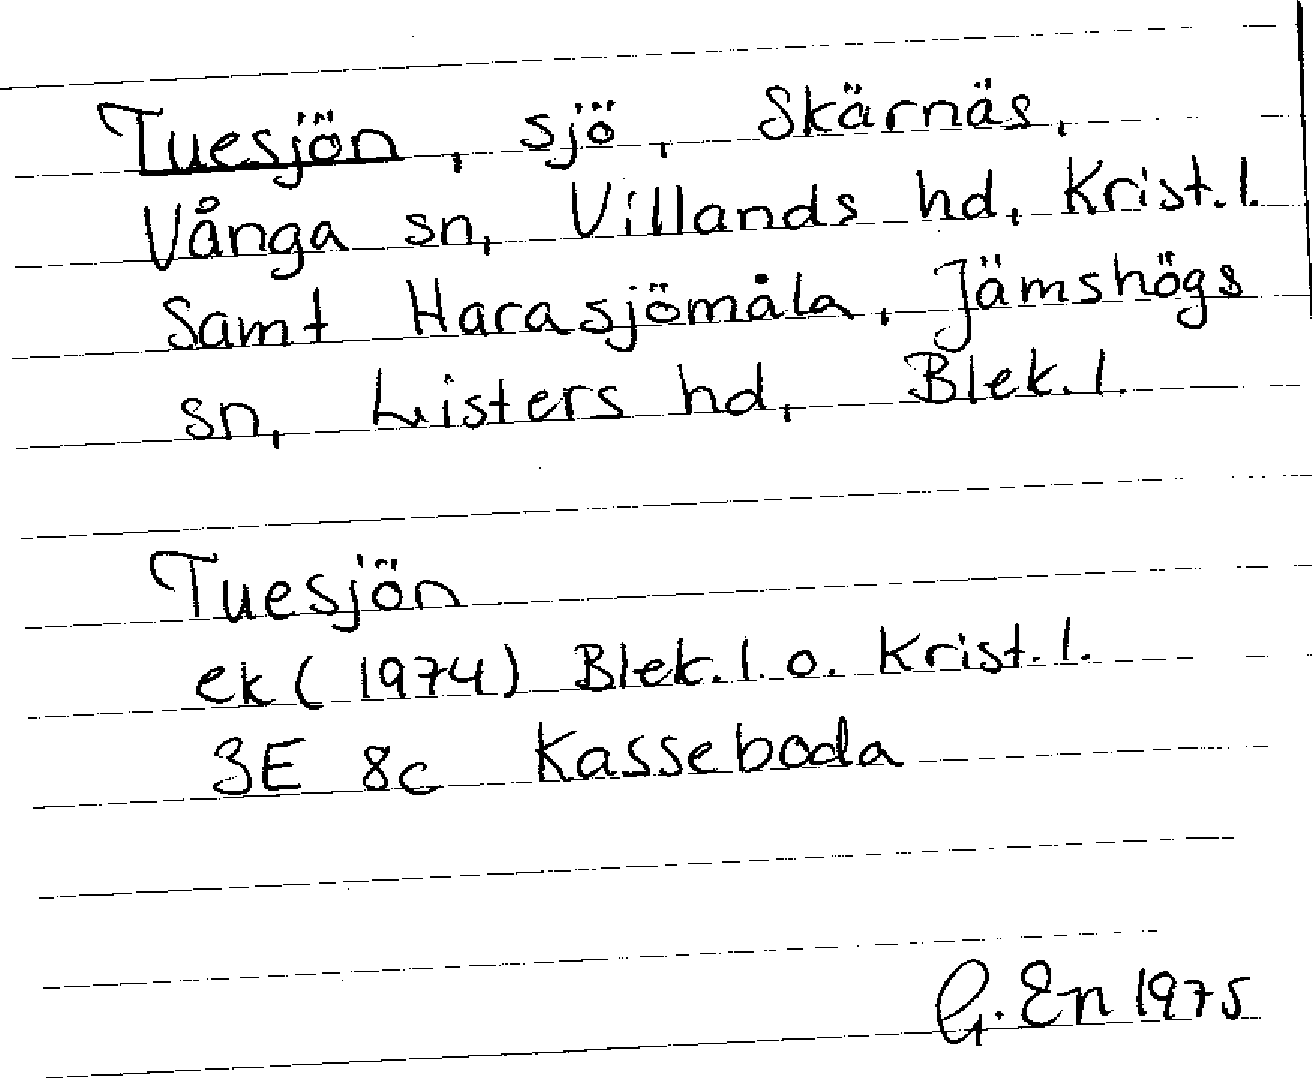 Tuesjön, sjö, Skärnäs,
Vånga sn, Villands hd, Krist.l.
Samt Harasjömåla, Jämshögs
sn, Listers hd, Blek.l.
Tuesjön
ek (1974) Blek.l.o. Krist.l.
3E 8c Kasseboda
G. En 1975